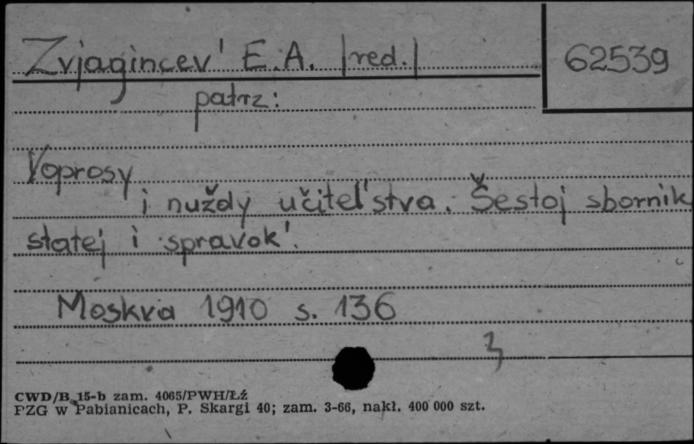 Zvjagincev' E.A. |red.|
62539
patrz:
Voprosy
i nuždy učitel'stva. Šestoj sbornik
statej i spravok'.
Moskva 1910 s. 136
3
CWD/B 15-b zam. 4065/PWH/Łź
PZG w Pabianicach, P. Skargi 40; zam. 3-66, nakł. 400 000 szt.